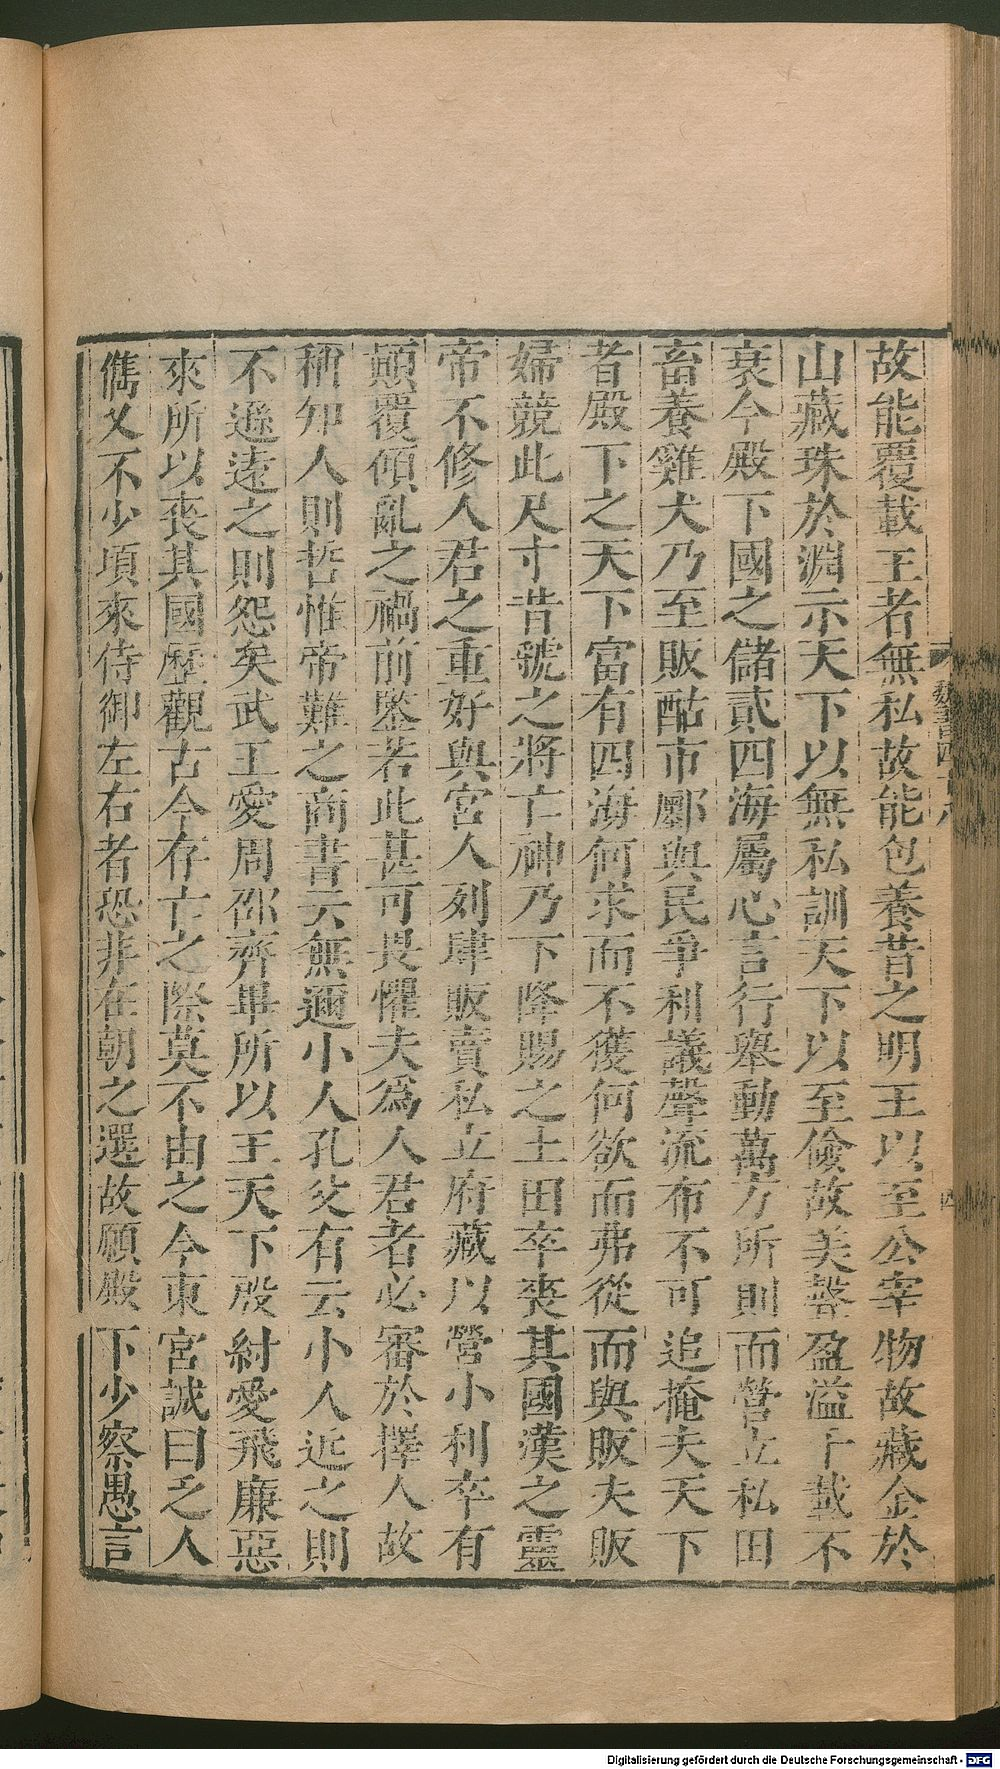 故能覆載王者無私故能包養昔之明王以至公宰物故藏金於
山藏珠於淵示天下以無私訓天下以至儉故美聲盈溢千載不
衰今殿下國之儲貳四海屬心言行舉動萬方所則而營立私田
畜養雞犬乃至販酤市鄽與民爭利議聲流布不可追掩夫天下
者殿下之天下富有四海何求而不獲何欲而弗從而與販夫販
婦競此尺寸昔虢之將亡神乃下降賜之土田卒喪其國漢之靈
帝不修人君之重好與宮人列肆販賣私立府藏以營小利卒有
顛覆傾亂之禍前鑒若此甚可畏懼夫為人君者必審於擇人故
稱知人則哲惟帝難之商書云無邇小人孔父有云小人近之則
不遜遠之則怨矣武王愛周邵齊畢所以王天下殷紂愛飛廉惡
來所以喪其國歷觀古今存亡之際莫不由之今東宮誠曰乏人
儁乂不少頃來侍御左右者恐非在朝之選故願殿下少察愚言
魏書四十八
四
Digitalisierung gefördert durch die Deutsche Forschungsgemeinschaft - DFG